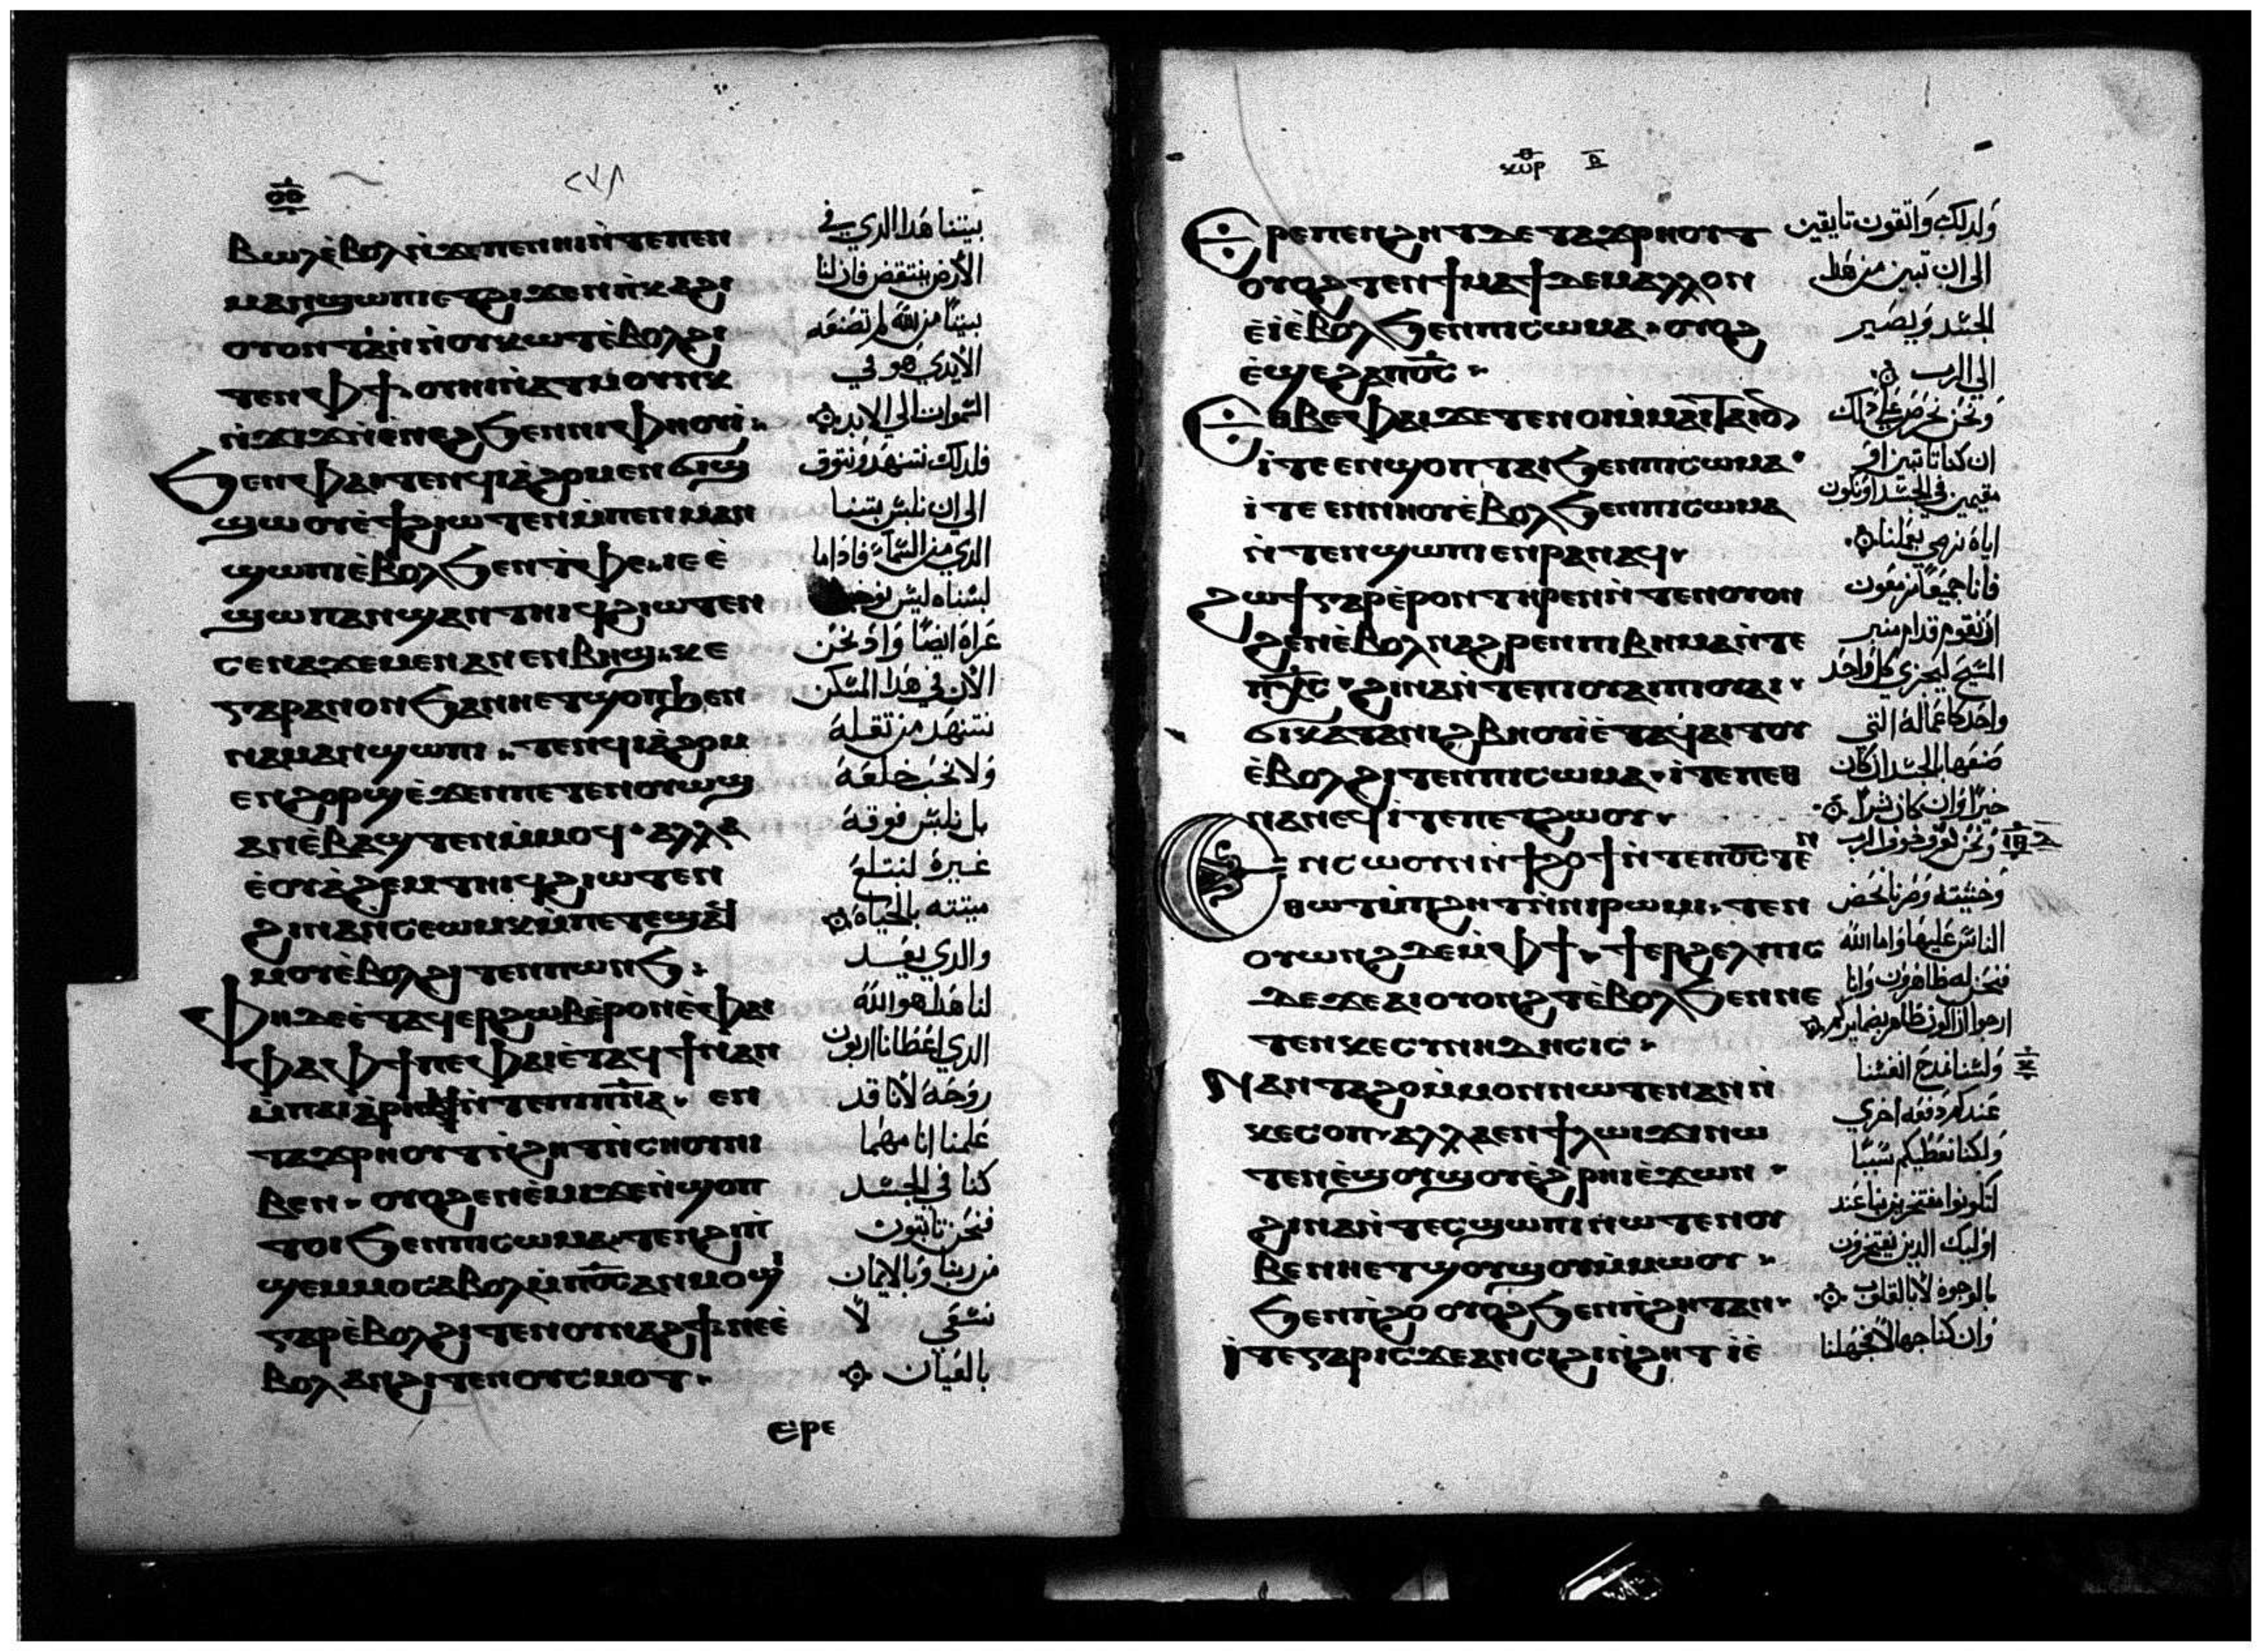 ⲃⲱⲗ ⲉ̀ⲃⲟⲗ ⲛ̀ϫⲉ ⲡⲉⲛⲏⲓ ⲛ̀ⲧⲉ ⲡⲉⲛ
ⲙⲁⲛϣⲱⲡⲓ ⲉⲧϩⲓϫⲉⲛ ⲡ̀ⲕⲁϩⲓ
ⲟⲩⲟⲛⲧⲁⲛ ⲛ̀ⲟⲩⲕⲱⲧ ⲉ̀ⲃⲟⲗϩⲓ
ⲧⲉⲛ ⲫϯ ⲟⲩⲏⲓ ⲛ̀ⲁⲧⲙⲟⲩⲛⲕ
ⲛ̀ϫⲓϫ ⲛ̀ⲉ̀ⲛⲉϩ ϧⲉⲛ ⲛⲓⲫⲏⲟⲩⲓ̀
ϧⲉⲛ ⲫⲁⲓ ⲧⲉⲛϥⲓⲁ̀ϩⲟⲙ ⲉⲛϭⲓϣ
ϣⲱⲟⲩ ⲉ̀ϯϩⲓⲱⲧⲉⲛ ⲙ̀ⲡⲉⲛⲙⲁⲛ
ϣⲱⲡⲓ ⲉ̀ⲃⲟⲗϧⲉⲛ ⲧ̀ⲫⲉ ⲓⲉ ⲉ̀
ϣⲱⲡ ⲁⲛϣⲁⲛⲧⲏⲓϥ ϩⲓⲱⲧⲉⲛ
ⲥⲉⲛⲁϫⲉⲙⲉⲛ ⲁⲛ ⲉⲛⲃⲏϣ ⲕⲉ
ⲅⲁⲣ ⲁⲛⲟⲛ ϧⲁ ⲛⲏⲉⲧϣⲟⲡ ϧⲉⲛ
ⲡⲁⲓⲙⲁⲛϣⲱⲡⲓ ⲧⲉⲛϥⲓⲁ̀ϩⲟⲙ
ⲉⲛϩⲟⲣϣ ⲉ̀ϫⲉⲛ ⲡⲉⲧⲉⲛⲟⲩⲱϣ
ⲁⲛ ⲉ̀ⲃⲁϣⲧⲉⲛ ⲙ̀ⲙⲟϥ ⲁⲗⲗⲁ
ⲉ̀ⲟⲩⲁ̀ϩⲉⲙ ⲧⲏⲓϥ ϩⲓⲱⲧⲉⲛ
ϩⲓⲛⲁ ⲛ̀ⲥⲉⲱⲙⲕ ⲙ̀ⲡⲉⲧⲉϣⲁϥ
ⲙⲟⲩ ⲉ̀ⲃⲟⲗϩⲓⲧⲉⲛ ⲡⲱⲛϧ
ⲫⲏ ⲇⲉ ⲉ̀ⲧⲁϥⲉⲣϩⲱⲃ ⲉ̀ⲣⲟⲛ ⲉ̀ⲫⲁⲓ
ⲫⲁ ⲫϯ ⲡⲉ ⲫⲁⲓ ⲉ̀ⲧⲁϥϯ ⲛⲁⲛ
ⲙ̀ⲡⲓⲁⲣⲏⲃ ⲛ̀ⲧⲉ ⲡⲓⲡ̅ⲛ̅ⲁ̅ ⲉⲛ
ⲧⲁϫⲣⲏⲟⲩⲧ ⲛ̀ϩⲏⲧ ⲛ̀ⲥⲏⲟⲩ ⲛⲓ
ⲃⲉⲛ ⲟⲩⲟϩ ⲉⲛⲉ̀ⲙⲓ ϫⲉ ⲉⲛϣⲟⲡ
ⲧⲟⲓ ϧⲉⲛ ⲡⲓⲥⲱⲙⲁ ⲧⲉⲛϩⲓⲡⲓ̀
ϣⲉⲙⲙⲟ ⲥⲁⲃⲟⲗ ⲙ̀ⲡⲟ̅ⲥ̅ ⲁⲛⲙⲟϣⲓ
ⲅⲁⲣ ⲉ̀ⲃⲟⲗϩⲓⲧⲉⲛ ⲟⲩⲛⲁϩϯ ⲛⲉ ⲉ̀
ⲃⲟⲗ ⲁⲛ ϩⲓⲧⲉⲛ ⲟⲩⲥⲙⲟⲧ
ⲉⲣⲉ
بيتنا هدا الدي في
الأرض ينتقض فان لنا
بيتًا من الله لم تصنعه
الأيدي هو في
السموات الي الابد
فلدلك نتنهد ونتوق
الي ان نلبس بيتنا
الدي من السماء فادا ما
لبسناه ليس نوجد
عراة ايضًا واد نحن
الأن في هدا المسكن
نتنهد من تقله
ولا نحب خلعه
بل نلبس فوقه
غيره لتبتلع
ميتته بالحياه
والدي يعد
لنا هدا هو الله
الدي اعطانا اربون
روحه لأنا قد
علمنا انا مهما
كنا في الجسد
فنحن نايبون
من ربنا وبالايمان
نسعي لا
بالعيان
ⲉⲣⲉ ⲡⲉⲛϩⲏⲧ ⲇⲉ ⲧⲁϫⲣⲏⲟⲩⲧ
ⲟⲩⲟϩ ⲧⲉⲛϯⲙⲁϯ ⲇⲉ ⲙⲁⲗⲗⲟⲛ
ⲉ̀ⲓ̀ ⲉ̀ⲃⲟⲗϧⲉⲛ ⲡⲓⲥⲱⲙⲁ ⲟⲩⲟϩ
ⲉ̀ϣⲉ ϩⲁ ⲡⲟ̅ⲥ̅
ⲉⲑⲃⲉ ⲫⲁⲓ ϫⲉ ⲧⲉⲛⲟⲓ ⲙ̀ⲙⲁⲓⲧⲁⲓⲟ
ⲓⲧⲉ ⲉⲛϣⲟⲡ ⲧⲁⲓ ϧⲉⲛ ⲡⲓⲥⲱⲙⲁ
ⲓⲧⲉ ⲉⲛⲛⲏⲟⲩ ⲉ̀ⲃⲟⲗϧⲉⲛ ⲡⲓⲥⲱⲙⲁ
ⲛ̀ⲧⲉⲛϣⲱⲡⲓ ⲉⲛⲣⲁⲛⲁϥ
ϩⲱϯ ⲅⲁⲣ ⲉ̀ⲣⲟⲛ ⲧⲏⲣⲉⲛ ⲛ̀ⲧⲉⲛⲟⲩⲟⲛ
ϩⲉⲛ ⲉ̀ⲃⲟⲗ ⲛⲁϩⲣⲉⲛ ⲡⲓⲃⲏⲙⲁ ⲛ̀ⲧⲉ
ⲡⲭ̅ⲥ̅ ϩⲓⲛⲁ ⲛ̀ⲧⲉ ⲡⲓⲟⲩⲁⲓ ⲡⲓⲟⲩⲁⲓ
ϭⲓ ⲕⲁⲧⲁ ⲛⲓϩⲃⲏⲟⲩⲓ̀ ⲉ̀ⲧⲁϥⲁⲓⲧⲟⲩ
ⲉ̀ⲃⲟⲗϩⲓⲧⲉⲛ ⲡⲓⲥⲱⲙⲁ ⲓⲧⲉ ⲡⲉⲑ
ⲛⲁⲛⲉϥ ⲓⲧⲉ ⲡⲉⲧϩⲱⲟⲩ
ⲉⲛⲥⲱⲟⲩⲛ ⲛ̀ϯϩⲟϯ ⲛ̀ⲧⲉ ⲡⲟ̅ⲥ̅ ⲧⲉⲛ
ⲑⲱⲧ ⲙ̀ⲡϩⲏⲧ ⲛ̀ⲛⲓⲣⲱⲙⲓ ⲧⲉⲛ
ⲟⲩⲱⲛϩ ⲇⲉ ⲙ̀ⲫϯ ϯⲉⲣϩⲉⲗⲡⲓⲥ
ⲇⲉ ϫⲉ ⲁⲓⲟⲩⲟⲛϩⲧ ⲉ̀ⲃⲟⲗϧⲉⲛ ⲛⲉ
ⲧⲉⲛⲕⲉⲥⲩⲛⲏⲇⲏⲥⲓⲥ
ⲛⲁⲛⲧⲁϩⲟ ⲙ̀ⲙⲟⲛ ⲛⲱⲧⲉⲛ ⲁⲛ ⲛ̀
ⲕⲉⲥⲟⲡ ⲁⲗⲗⲁ ⲉⲛϯⲗⲱⲓϫⲓ ⲛⲱ
ⲧⲉⲛ ⲉ̀ϣⲟⲩϣⲟⲩ ⲉ̀ϩⲣⲏⲓ ⲉ̀ϫⲱⲛ
ϩⲓⲛⲁ ⲛ̀ⲧⲉⲥϣⲱⲡⲓ ⲛⲱⲧⲉⲛ ⲟⲩ
ⲃⲉ ⲛⲏⲉⲧϣⲟⲩϣⲟⲩ ⲙ̀ⲙⲱⲟⲩ
ϧⲉⲛ ⲡ̀ϩⲟ ⲟⲩⲟϩ ϧⲉⲛ ⲡ̀ϩⲏⲧ ⲁⲛ
ⲓⲧⲉ ⲅⲁⲣ ⲓⲥϫⲉ ⲁⲛⲥⲓϩⲓ ⲛ̀ϩⲏⲧ ⲓⲉ̀
ولدلك واتقون تايقين
الي ان نبين من هدا
الجسد ونصير
الي الرب
ونحن نحرص علي دلك
ان كنا تابتين او
مقيمين في الجسد او نكون
اياه نرضي بعملنا
فانا جميعًا مزمعون
ان نقوم قدام منبر
المسيح ليجزي كل واحد
واحد كاعماله التي
صنعها بالجسد ان كان
خيرًا وان كان شرًا
ونحن نعرف خوف الرب
الناس عليها واما الله
فنحن له ظاهرون وانا
ارجوا ان اكون ظاهر بضمايركم
ولسنا نمدح انفسنا
عندكم دفعه اخري
ولكنا نعطيكم سببًا
لتكونوا مفتخرين بنا عند
اوليك الدين يفتخرون
بالوجوه لا بالقلب
وان كنا جهالا فجهلنا